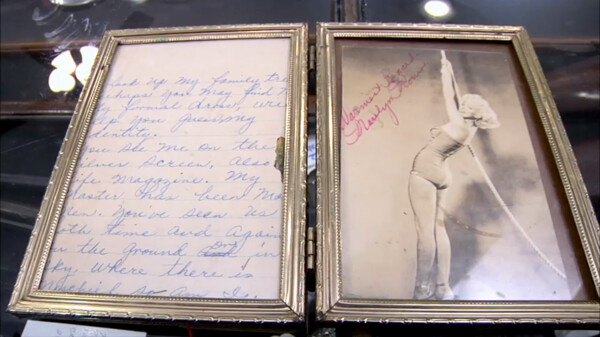 look up my family tre
you may find
formal dress, wi
you guessing my
dentity.
ou see me on the
ilver Screen, Also
ife Magazine. My
Master has been Ma
en. You've seen us
oth time And Again
n the ground in
ky. Where there is
so Am I.
Warmest Regards
Marilyn Monroe